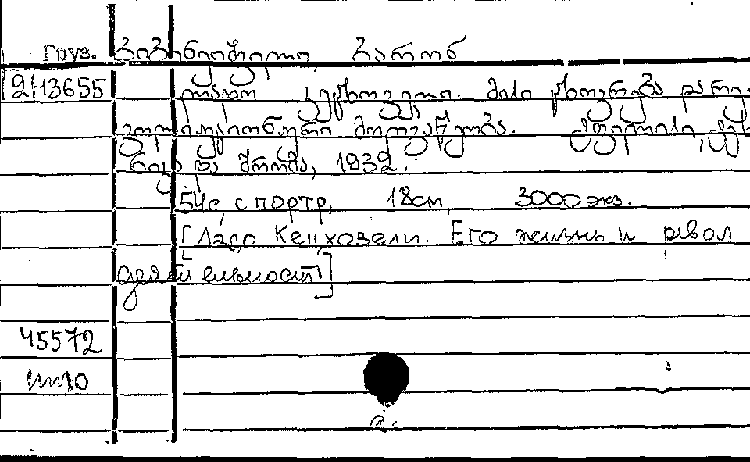 Груз. ბიბინეიშვილი, ბარონ
2413655 ლადო კეცხოველი. მისი ცხოვრება და რევ
ოლიუციონური მოღვაწეობა. ტფილისი,
და შრომა, 1932.
54с с портр, 18см, 3000 экз.
[Ладо Кецховели. Его жизнь и револ
деятельност]
45572